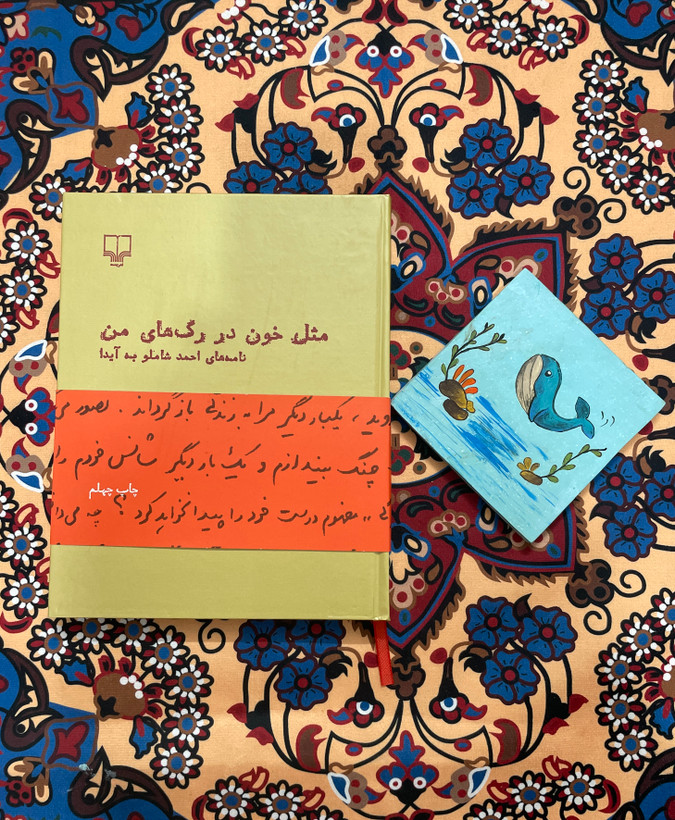 چشمه
مثل خون در رگ‌های من
نامه‌های احمد شاملو به آیدا
، یکبار دیگر مرا به زندگی بازگرداند . تصور می
چنگ بیندازم و یک بار دیگر شانس خودم را
چاپ چهلم
مفهوم درست خود را پیدا نخواهد کرد ؟ چه می‌دا